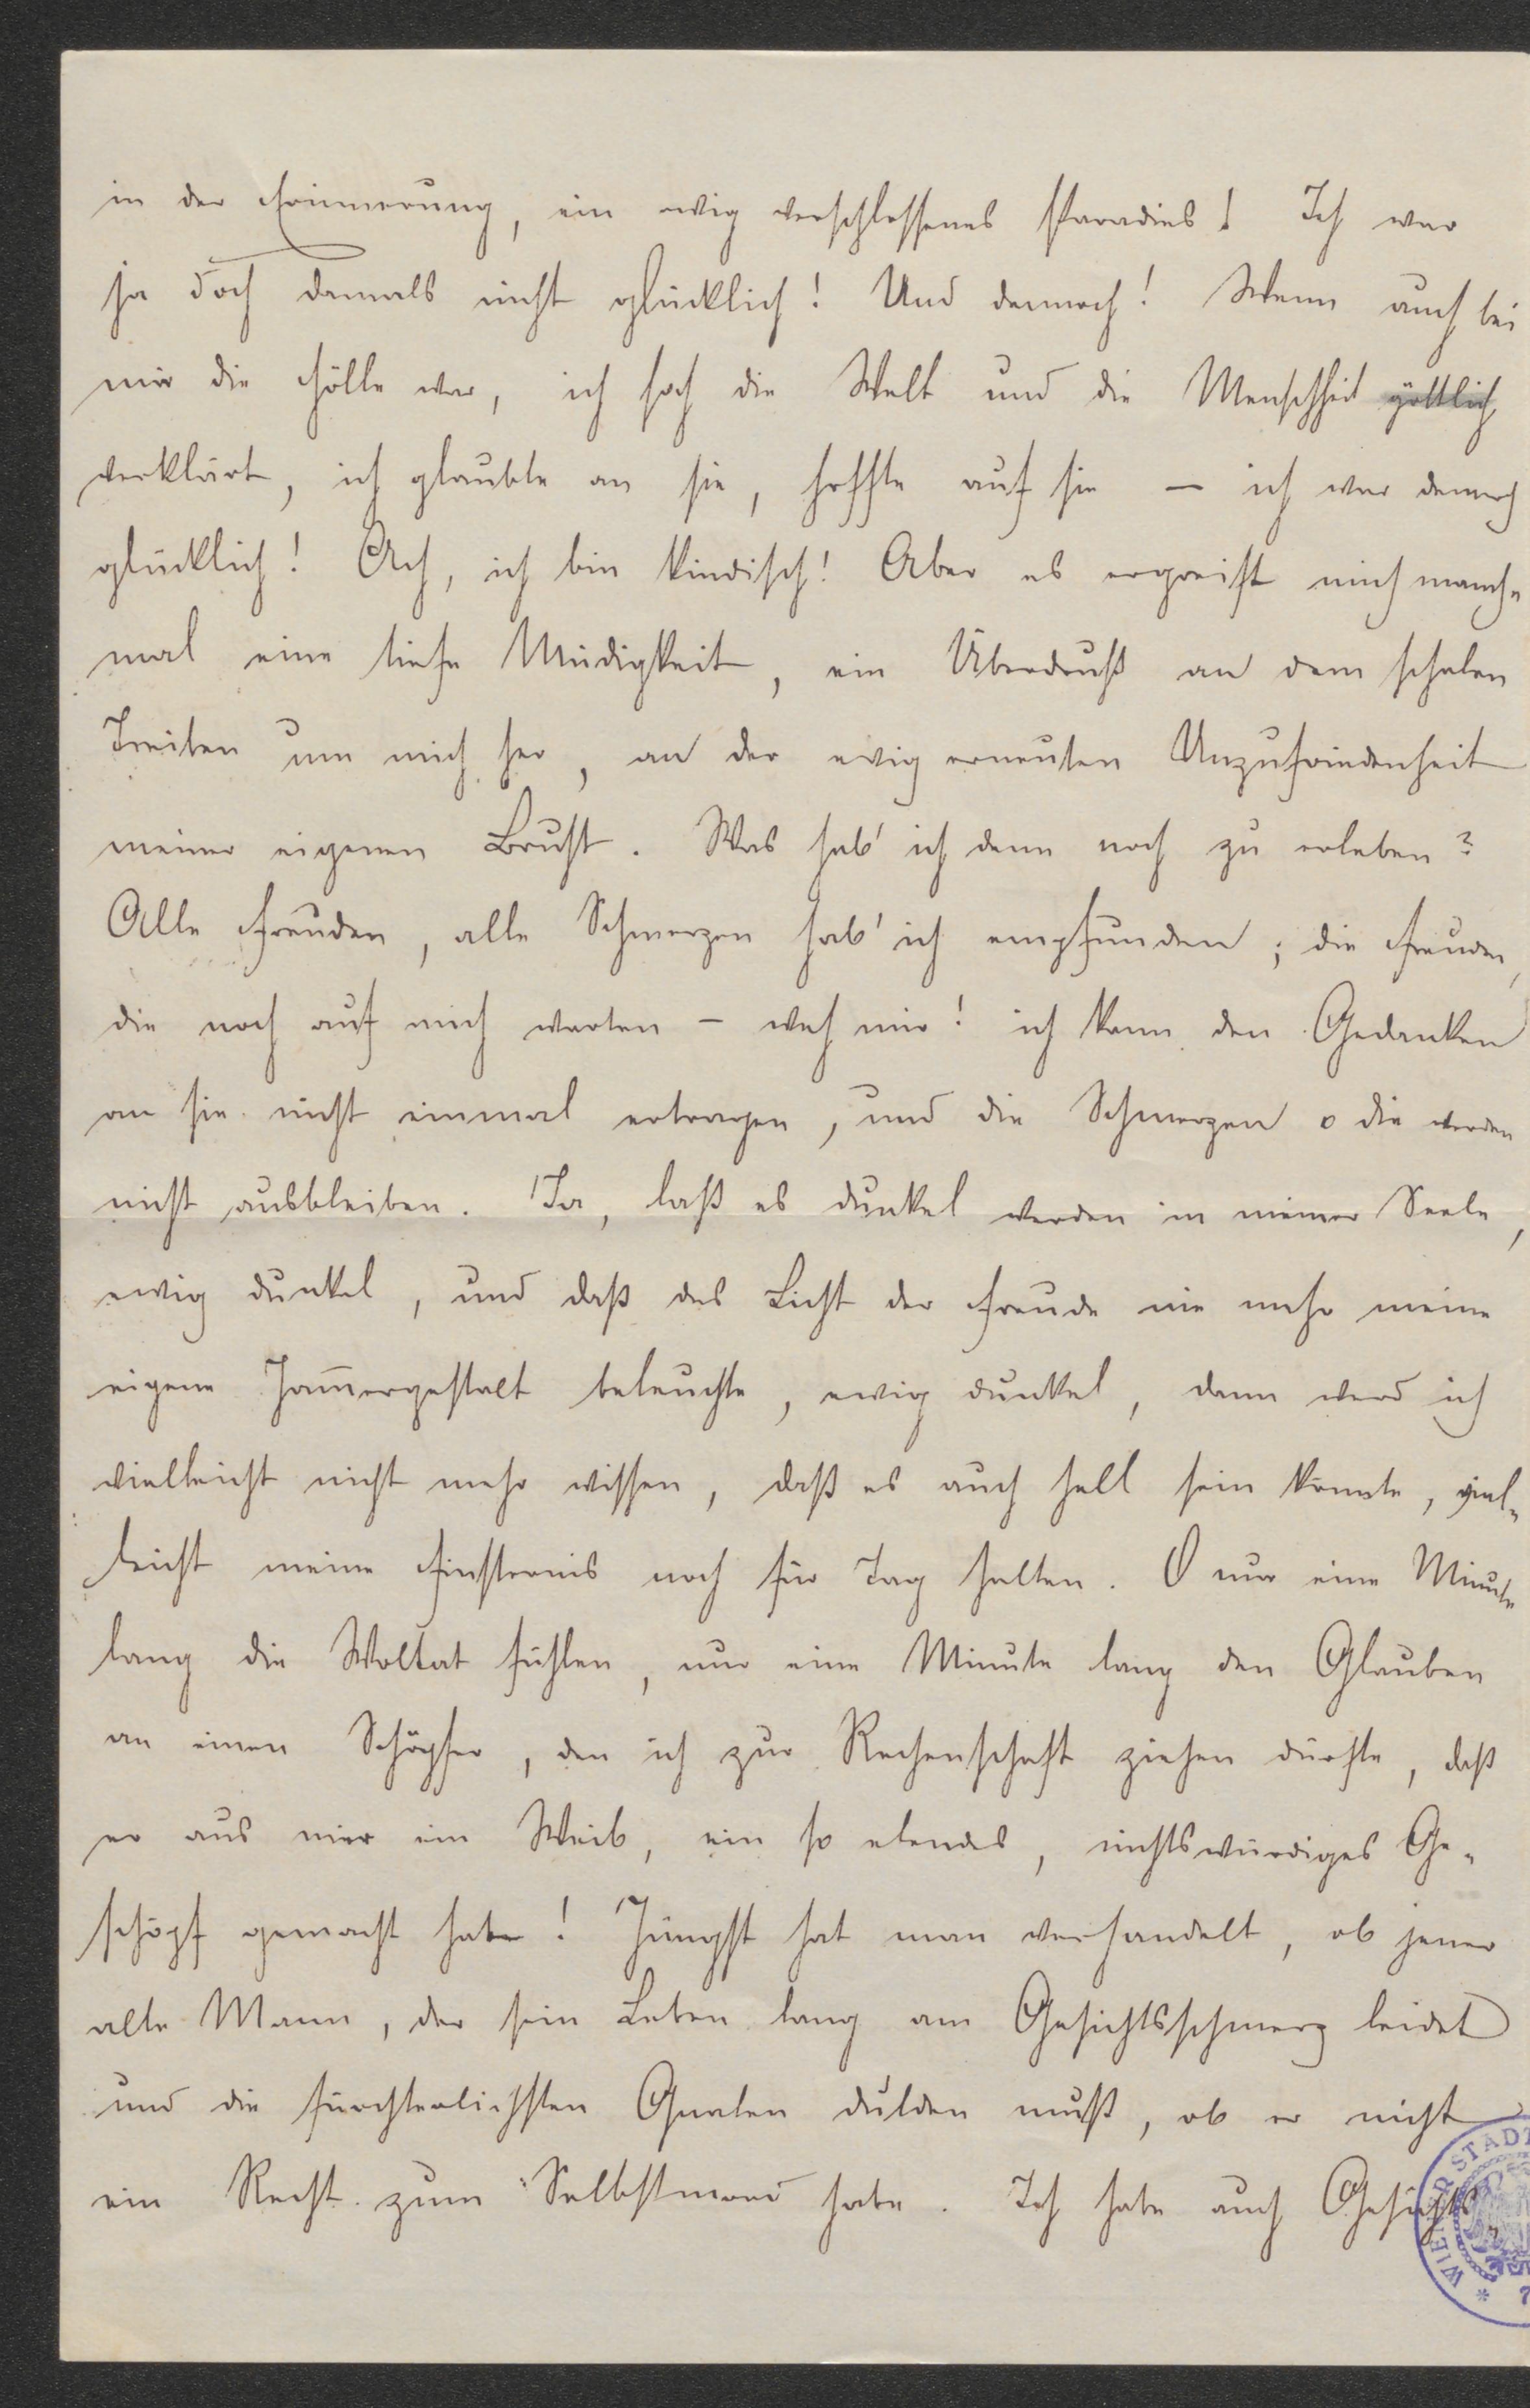 in der Erinnerung, ein ewig verschlossenes Paradies! Ich war
ja doch damals nicht glücklich! Und dennoch! Wenn auch bei
mir die Hölle war, ich sah die Welt und die Menschheit göttlich
verklärt, ich glaubte an sie, hoffte auf sie — ich war dennoch
glücklich! Ach, ich bin kindisch! Aber es ergreift mich manch-
mal eine tiefe Müdigkeit, ein Überdruß an dem schalen
Treiben um mich her, an der ewig erneuten Unzufriedenheit
meiner eigenen Brust. Was hab' ich denn noch zu erleben?
Alle Freuden, alle Schmerzen hab' ich empfunden; die Freuden,
die noch auf mich warten – weh mir! ich kann den Gedanken
an sie nicht einmal ertragen, und die Schmerzen o die werden
nicht ausbleiben. Ja, laß es dunkel werden in meiner Seele,
ewig dunkel, und daß das Licht der Freude nie mehr meine
eigene Jam̄ergestalt beleuchte, ewig dunkel, dann werd ich
vielleicht nicht mehr wissen, daß es auch hell sein könnte, viel-
leicht meine Finsternis noch für Tag halten. O nur eine Minute
lang die Woltat fühlen, nur eine Minute lang den Glauben
an einen Schöpfer, den ich zur Rechenschaft ziehen dürfte, daß
er aus mir ein Weib, ein so elendes, nichtswürdiges Ge-
schöpf gemacht habe! Jüngst hat man verhandelt, ob jener
alte Mann, der sein Leben lang am Gesichtsschmerz leidet
und die fürchterlichsten Qualen dulden muß, ob er nicht
ein Recht zum Selbstmord habe. Ich habe auch Gesichts-
WIENER STADT